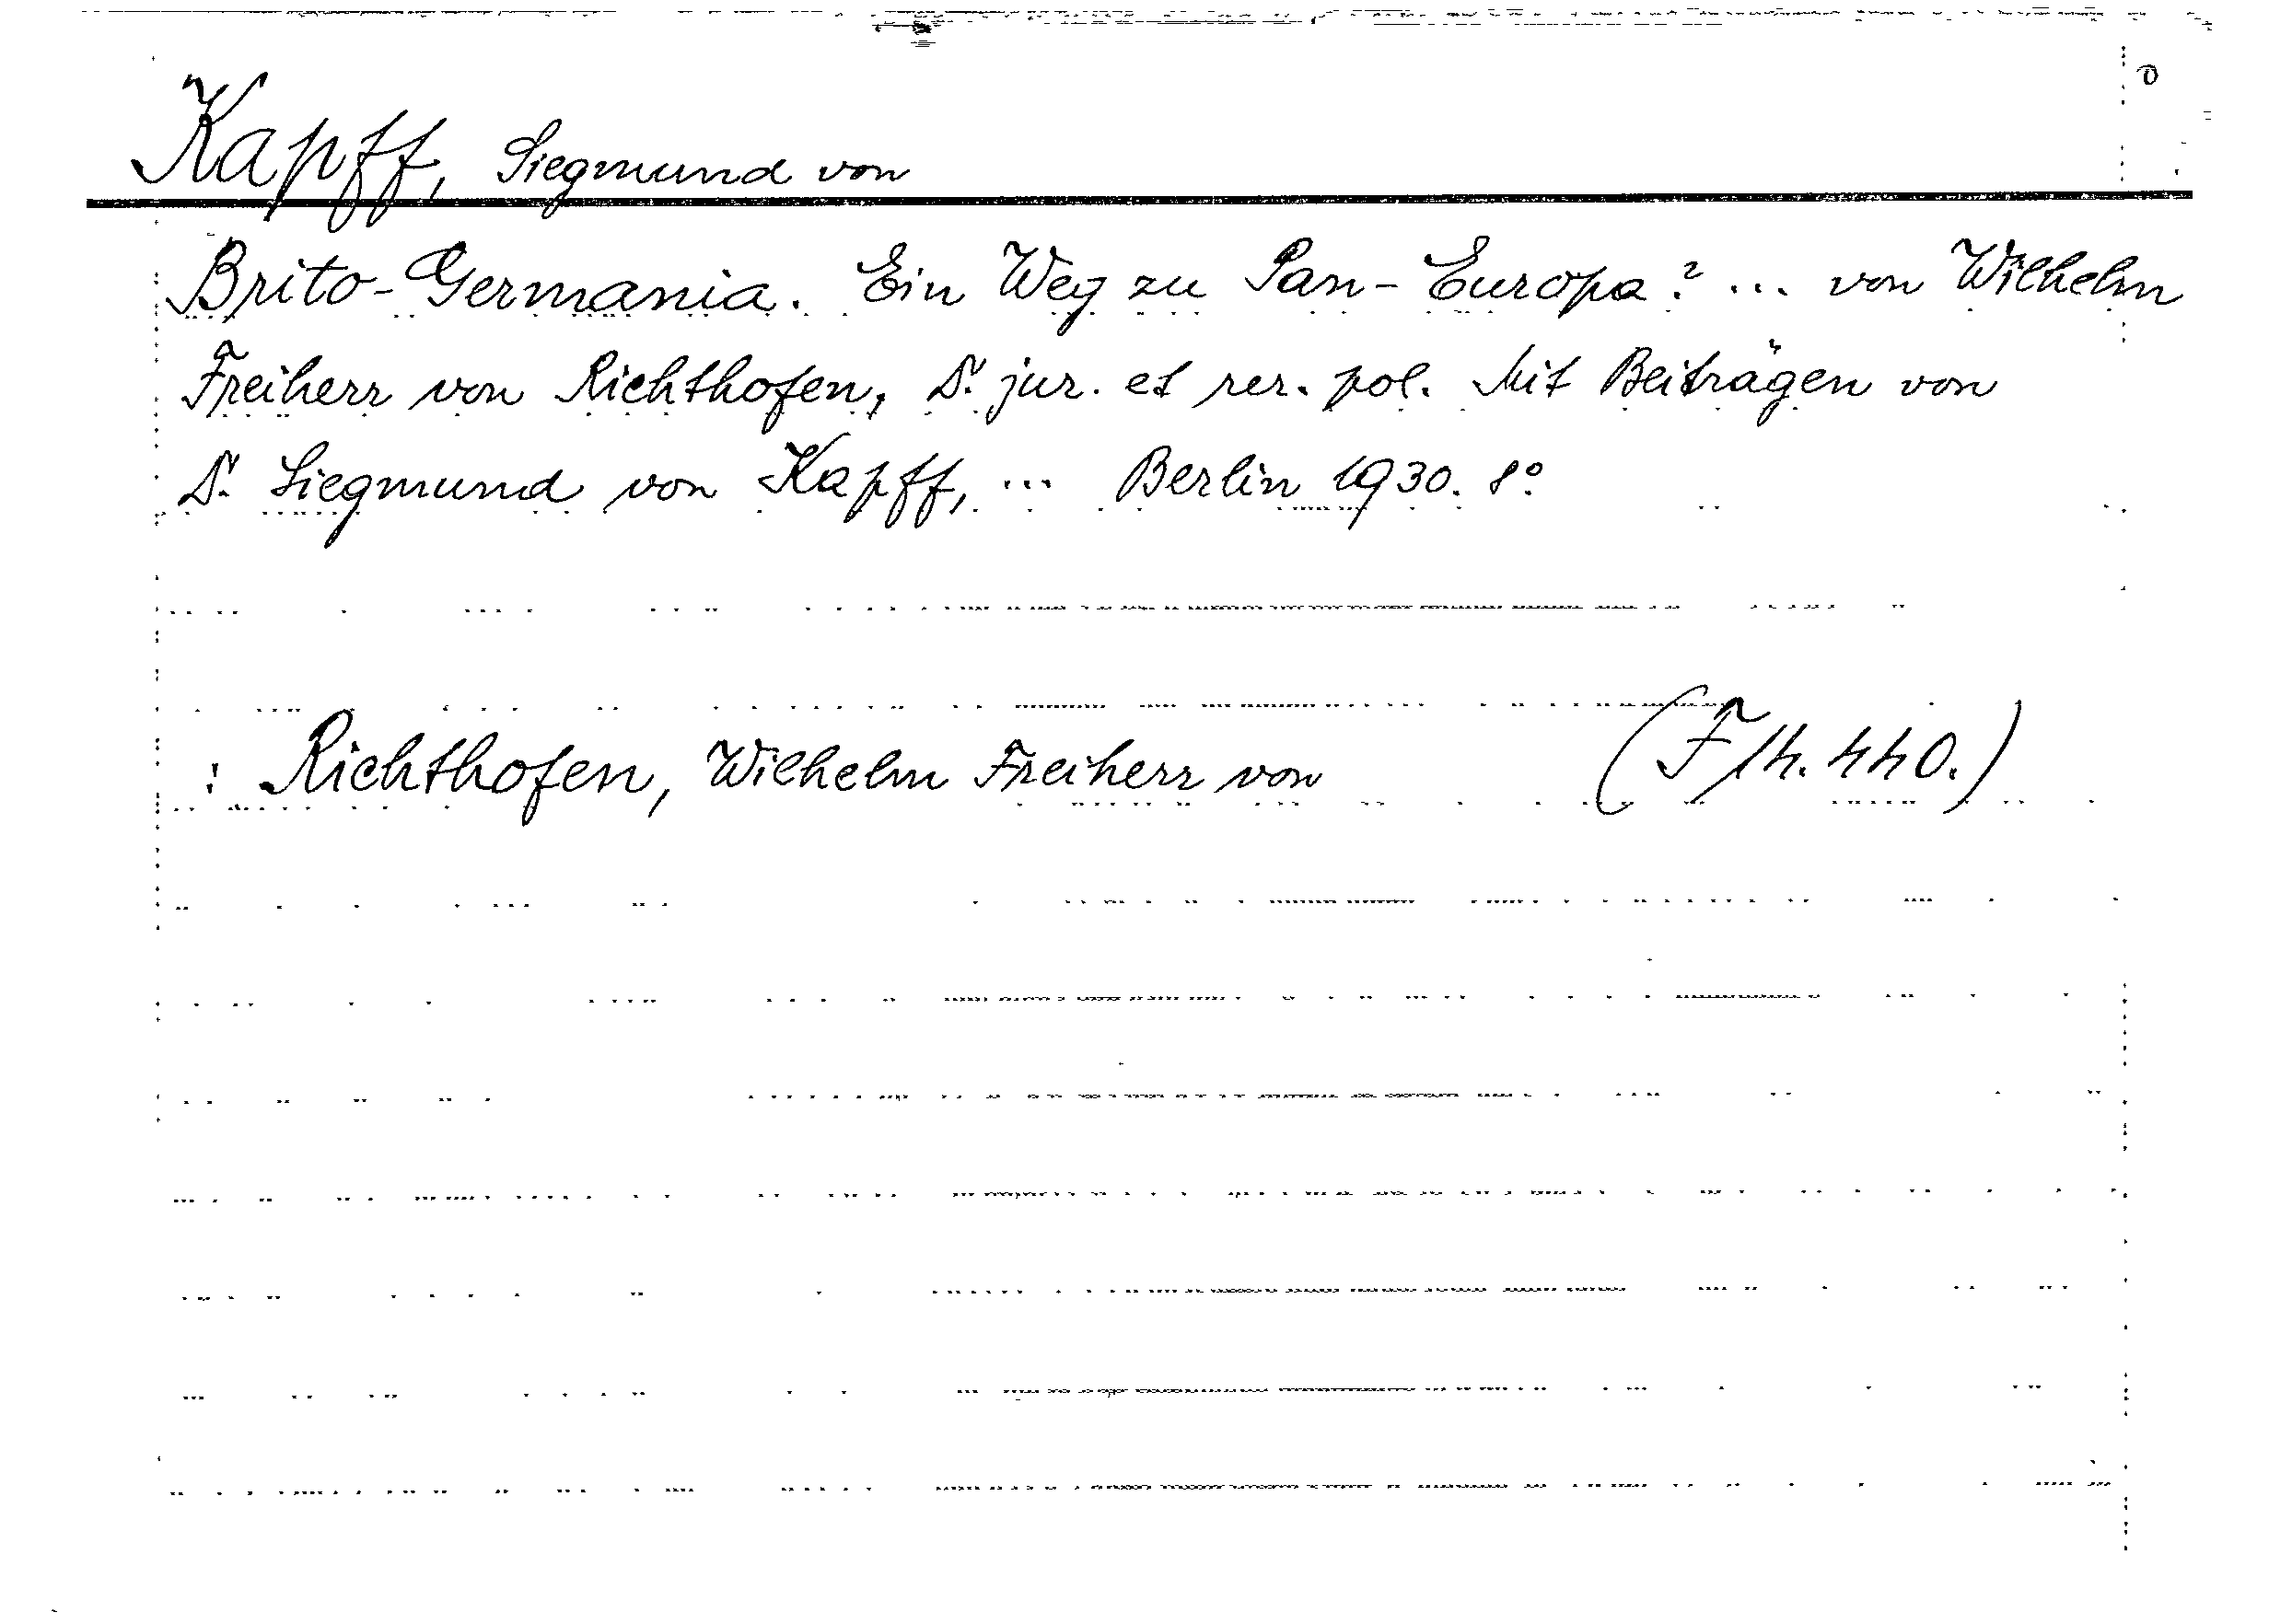 Kapff, Siegmund von
Brito-Germania. Ein Weg zu Pan-Europa? ... von Wilhelm
Freiherr von Richthofen, Dr. jur. et rer. pol. Mit Beiträgen von
Dr. Siegmund von Kapff, ... Berlin 1930. 8°.
: Richthofen, Wilhelm Freiherr von (F14.440.)